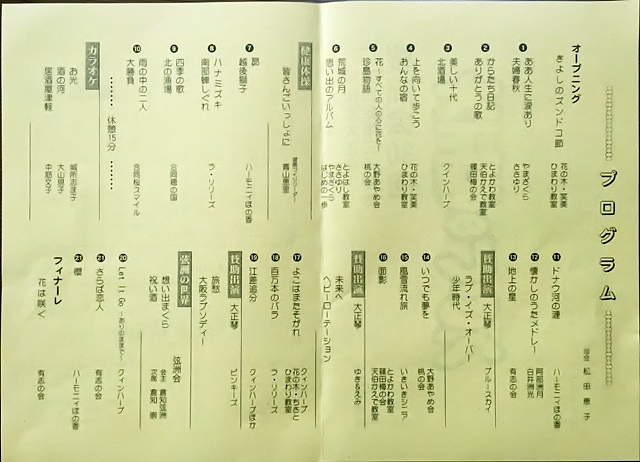 プログラム
司会 松田 恵子
オープニング
きよしのズンドコ節
花の木・笑美
ひまわり教室
❶ ああ人生に涙あり
夫婦春秋
やまざくら
ささゆり
❷ からたち日記
ありがとうの歌
とよかわ教室
天伯かえで教室
篠田梅の会
❸ 美しい十代
北酒場
クインハープ
❹ 上を向いて歩こう
おんなの宿
花の木・笑美
ひまわり教室
❺ 花～すべての人の心に花を～
珍島物語
大野あやめ会
桃の会
❻ 荒城の月
思い出のアルバム
とよはし教室
ささゆり
やまざくら
はじめの一歩
健康体操
皆さんごいっしょに
青山恵里
❼ 昴
越後獅子
ハーモニィほの香
❽ ハナミズキ
南部蝉しぐれ
ラ・リリーズ
❾ 四季の歌
北の漁場
合同穂の国
❿ 雨の中の二人
大勝負
合同桜スマイル
………休憩15分………
カラオケ
お光
城所志ま子
酒の河
大山明子
居酒屋津軽
中筋文子
⓫ ドナウ河の漣
ハーモニィほの香
⓬ 懐かしのうたメドレー
阿部洲月
白井洲光
⓭ 地上の星
有志の会
賛助出演 大正琴
ラブ・イズ・オーバー
少年時代
ブルースカイ
⓮ いつでも夢を
大野あやめ会
桃の会
⓯ 風雪流れ旅
いきいきシニア
⓰ 面影
とよかわ教室
篠田梅の会
天伯かえで教室
賛助出演 大正琴
未来へ
ヘビーローテーション
ゆき&えみ
⓱ よこはまたそがれ
クィンハープ
花の木・ちさと
ひまわり教室
⓲ 百万本のバラ
ラ・リリーズ
⓳ 江差追分
クィンハープほか
賛助出演 大正琴
旅愁
大阪ラプソディー
ピンキーズ
弦洲の世界
弦洲会
想い出まくら
会主 倉知弦洲
祝い酒
次席 倉知 崇
⓴ Let It Go ～ありのままで～
クィンハープ
㉑ さらば恋人
有志の会
㉑ 櫻
ハーモニィほの香
フィナーレ
花は咲く
有志の会